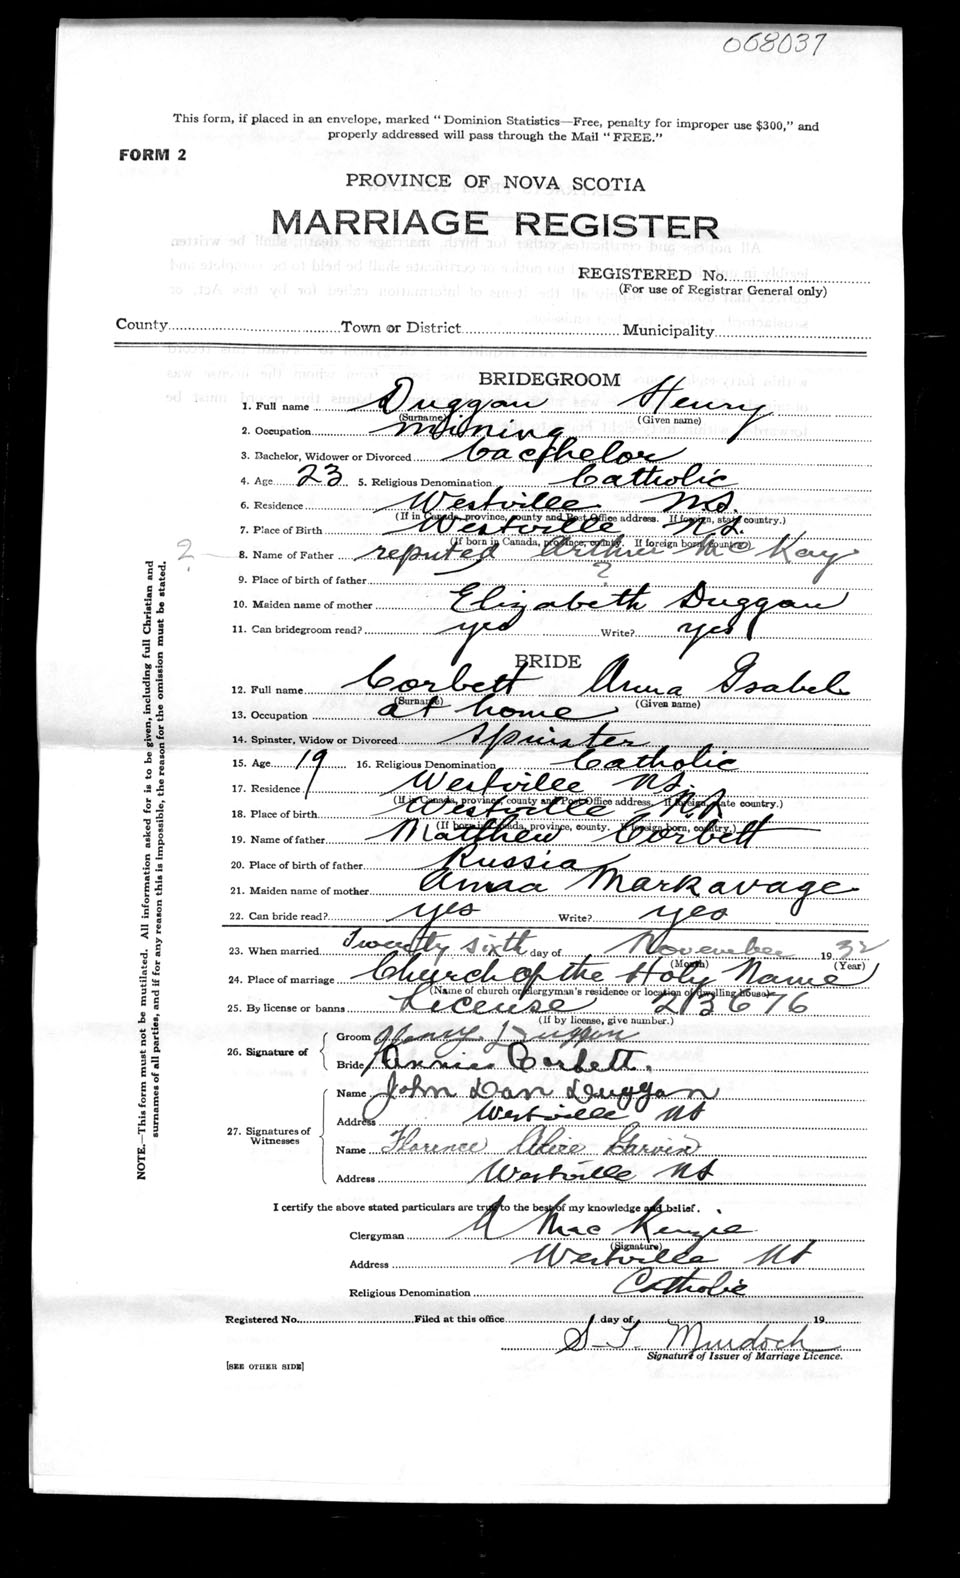 068037
This form, if placed in an envelope, marked "Dominion Statistics—Free, penalty for improper use $300," and
properly addressed will pass through the Mail "FREE."
FORM 2
PROVINCE OF NOVA SCOTIA
MARRIAGE REGISTER
REGISTERED No.
(For use of Registrar General only)
County Town or District Municipality
BRIDEGROOM
1. Full name Duggan Henry
(Surname) (Given name)
2. Occupation mining
3. Bachelor, Widower or Divorced bacthelor
4. Age 23 5. Religious Denomination Catholic
6. Residence Westville N.S.
(If in Canada, province, county and Post Office address. If foreign, state country.)
7. Place of Birth Westville N.S.
(If born in Canada, province, county. If foreign born, country)
? 8. Name of Father reputed Arthur Mc Kay
9. Place of birth of father ?
10. Maiden name of mother Elizabeth Duggan
11. Can bridegroom read? yes Write? yes
BRIDE
12. Full name Corbett Anna Isabel
(Surname) (Given name)
13. Occupation at home
14. Spinster, Widow or Divorced spinster
15. Age 19 16. Religious Denomination Catholic
17. Residence Westville N.S.
(If in Canada, province, county and Post Office address. If foreign, state country.)
18. Place of birth Westville N.S.
(If born in Canada, province, county. If foreign born, country.)
19. Name of father Matthew Corbett
20. Place of birth of father Russia
21. Maiden name of mother Anna Markavage
22. Can bride read? yes Write? yes
23. When married Twenty sixth day of November 1932
(Month) (Year)
24. Place of marriage Church of the Holy Name
(Name of church or clergyman's residence or location of dwelling house)
25. By license or banns License 213676
(If by license, give number.)
26. Signature of
Groom Henry Duggan
Bride Annie Corbett.
27. Signatures of
Witnesses
Name John Dan Duggan
Address Westville NS
Name Florence Alice Garvin
Address Westville NS
I certify the above stated particulars are true to the best of my knowledge and belief.
Clergyman A MacKenzie
(Signature)
Address Westville NS
Religious Denomination Catholic
Registered No. Filed at this office day of 19
S. T. Murdoch
Signature of Issuer of Marriage Licence.
[SEE OTHER SIDE]
NOTE.—This form must not be mutilated. All information asked for is to be given, including full Christian and
surnames of all parties, and if for any reason this is impossible, the reason for the omission must be stated.